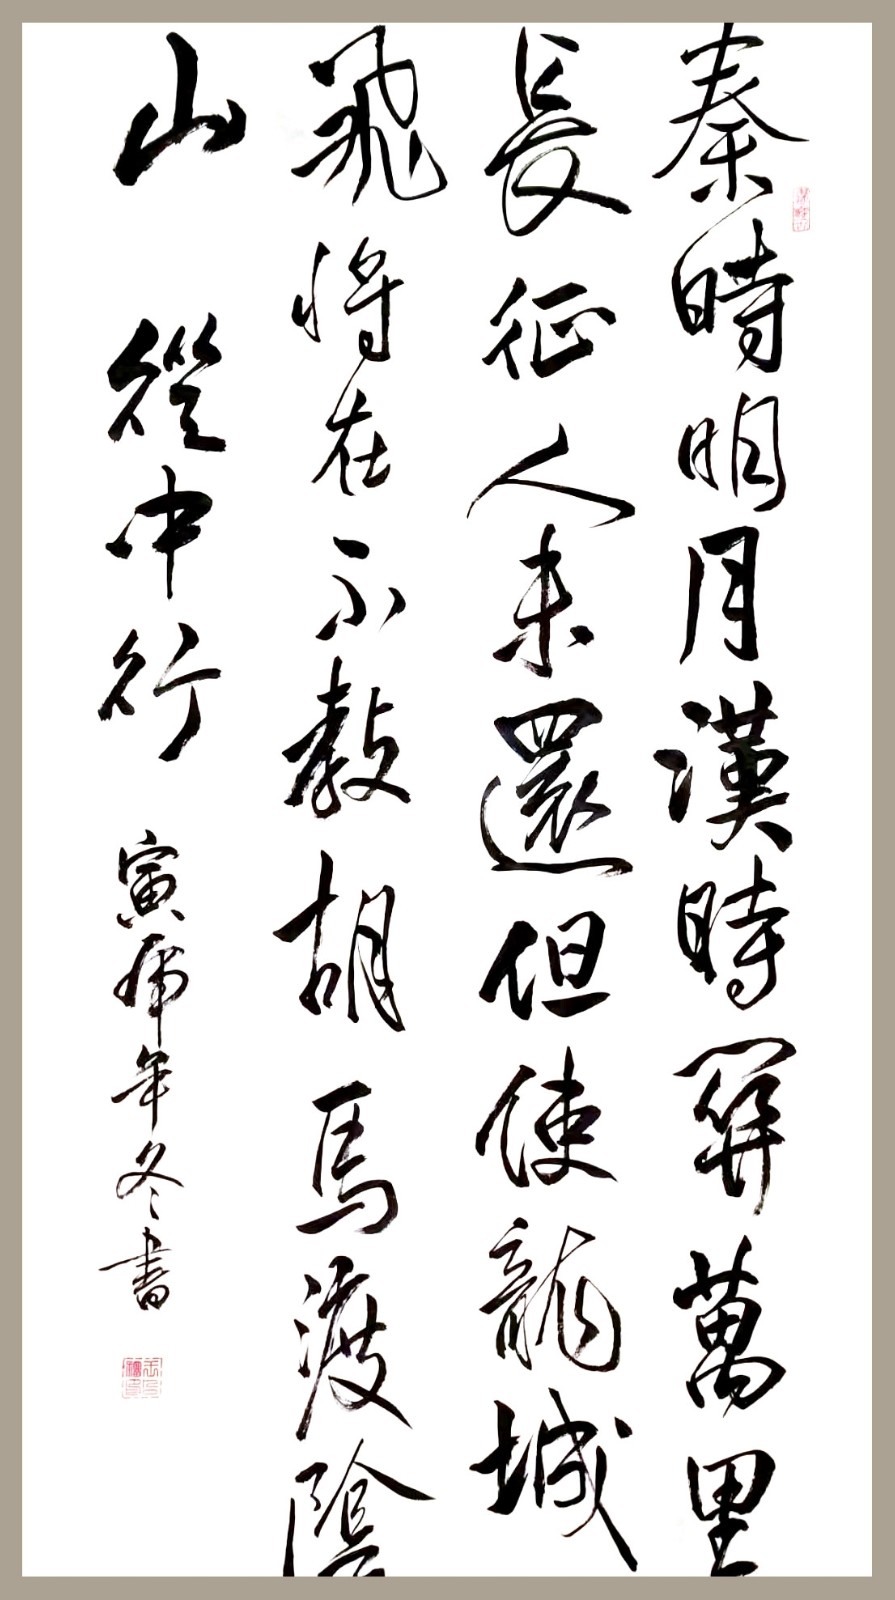 秦時明月漢時關萬里
長征人未還但使龍城
飛將在不教胡馬渡陰
山 從中行
寅虎年冬書